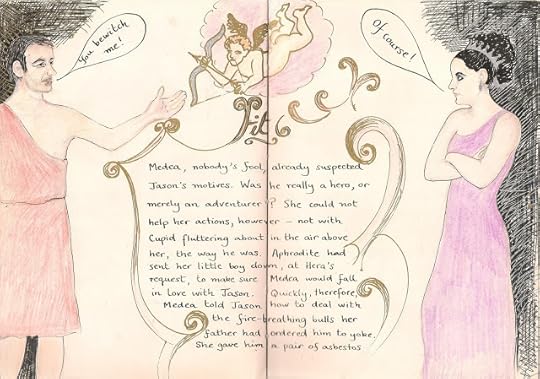 You bewitch
me!
Of course!
Fit 6
Medea, nobody's fool, already suspected
Jason's motives. Was he really a hero, or
merely an adventurer? She could not
help her actions, however – not with
Cupid fluttering about in the air above
her, the way he was. Aphrodite had
sent her little boy down, at Hera's
request, to make sure Medea would fall
in love with Jason. Quickly, therefore,
Medea told Jason how to deal with
the fire-breathing bulls her
father had ordered him to yoke.
She gave him a pair of asbestos